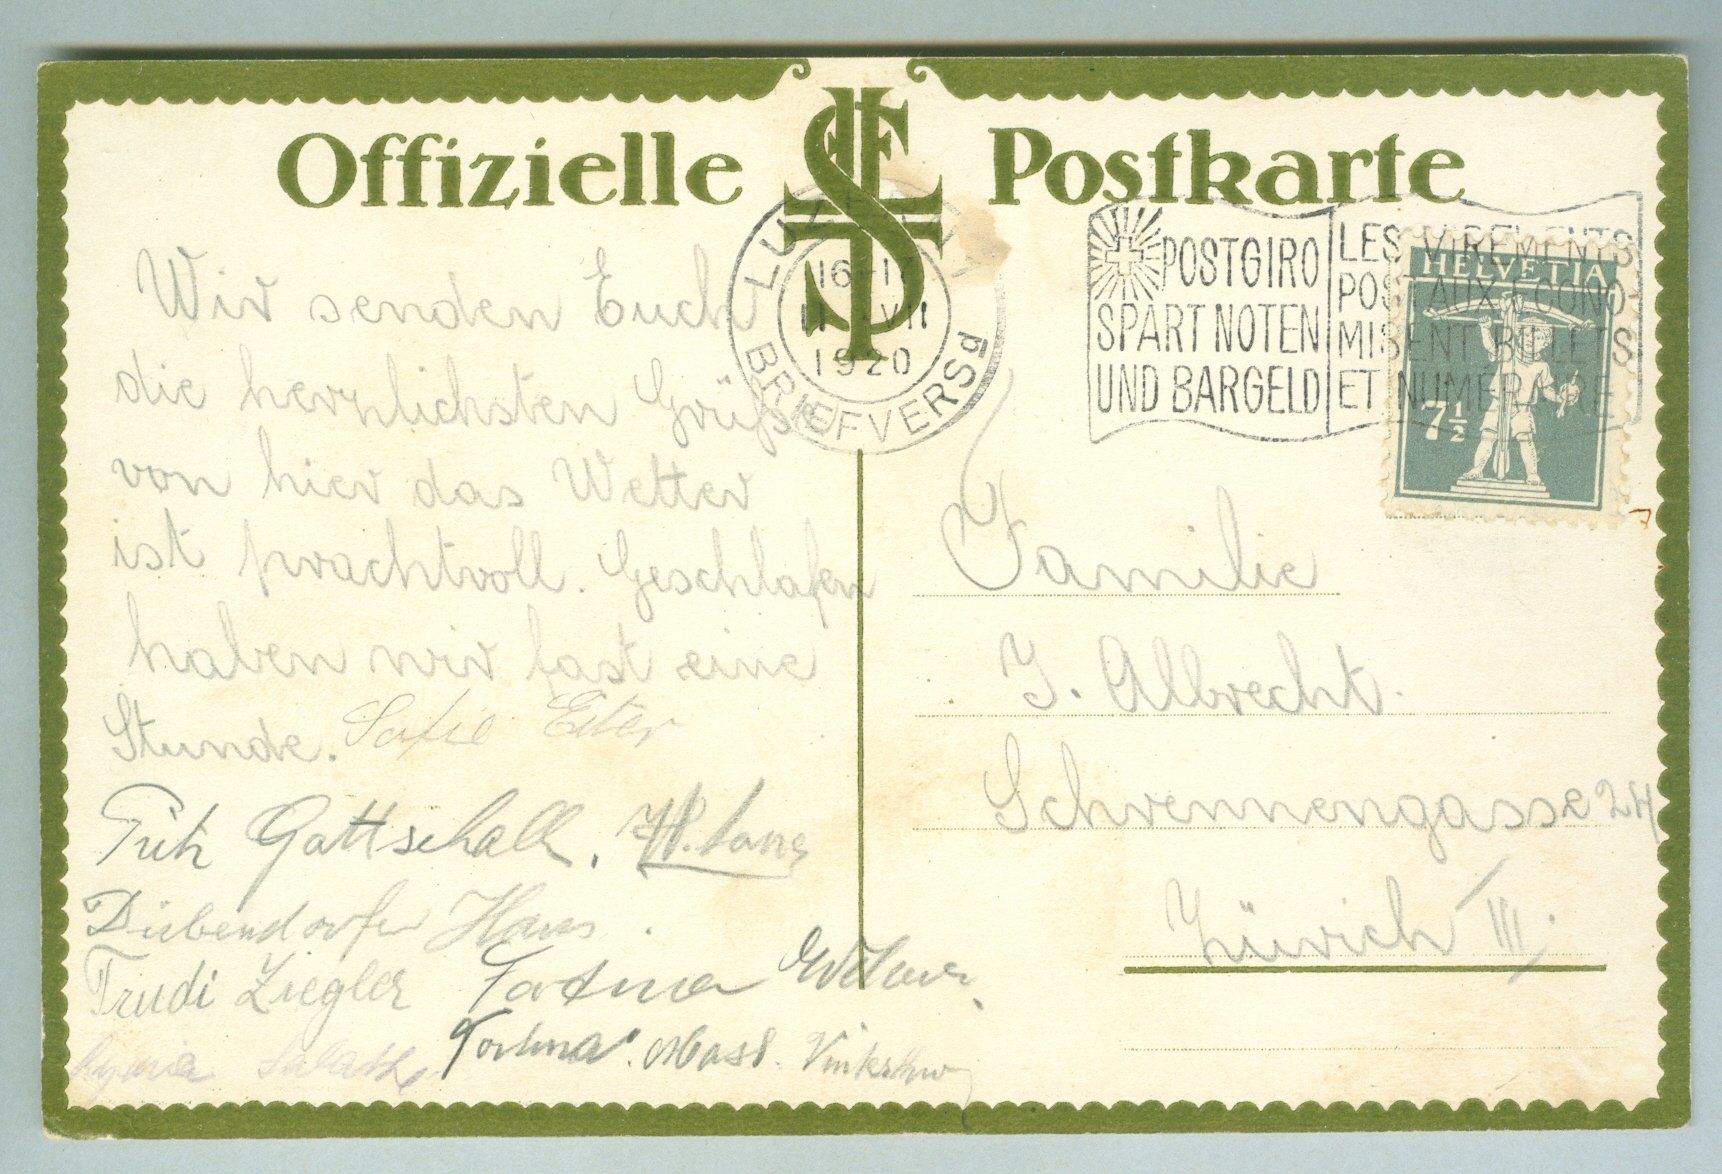 Offizielle Postkarte
LUZERN
16-17
VII
1920
BRIEFVERSd
POSTGIRO
SPART NOTEN
UND BARGELD
LES VIREMENTS
POSTAUX ECONO
MISENT BILLETS
ET NUMÉRAIRE
HELVETIA
7½
Wir senden Euch
die herzlichsten Grüße
von hier das Wetter
ist prachtvoll. Geschlafen
haben wir fast eine
Stunde. Sofie Eiter
Fritz Gottschall.
Diebendorfer Hans.
Trudi Ziegler Fortuna
Fortuna.
Familie
J. Albrecht.
Schrennengasse 24
Zürich III,